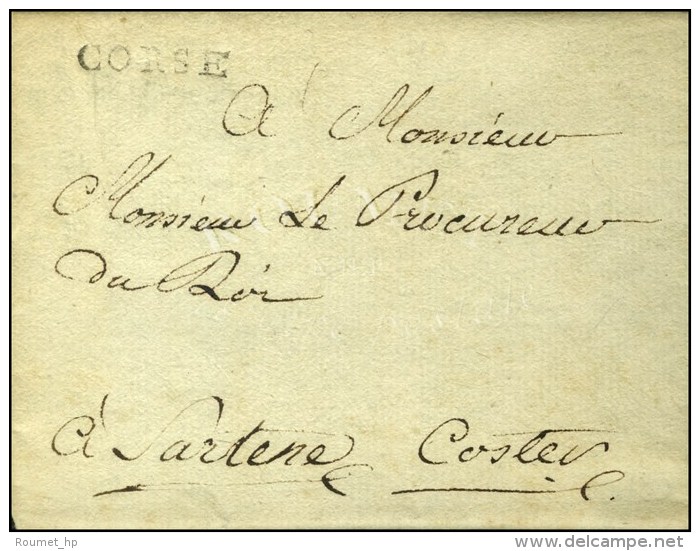 CORSE
A Monsieur
Monsieur Le Procureur
du Roi
à Sartene Coster
Roumet_hp
delcampe.net